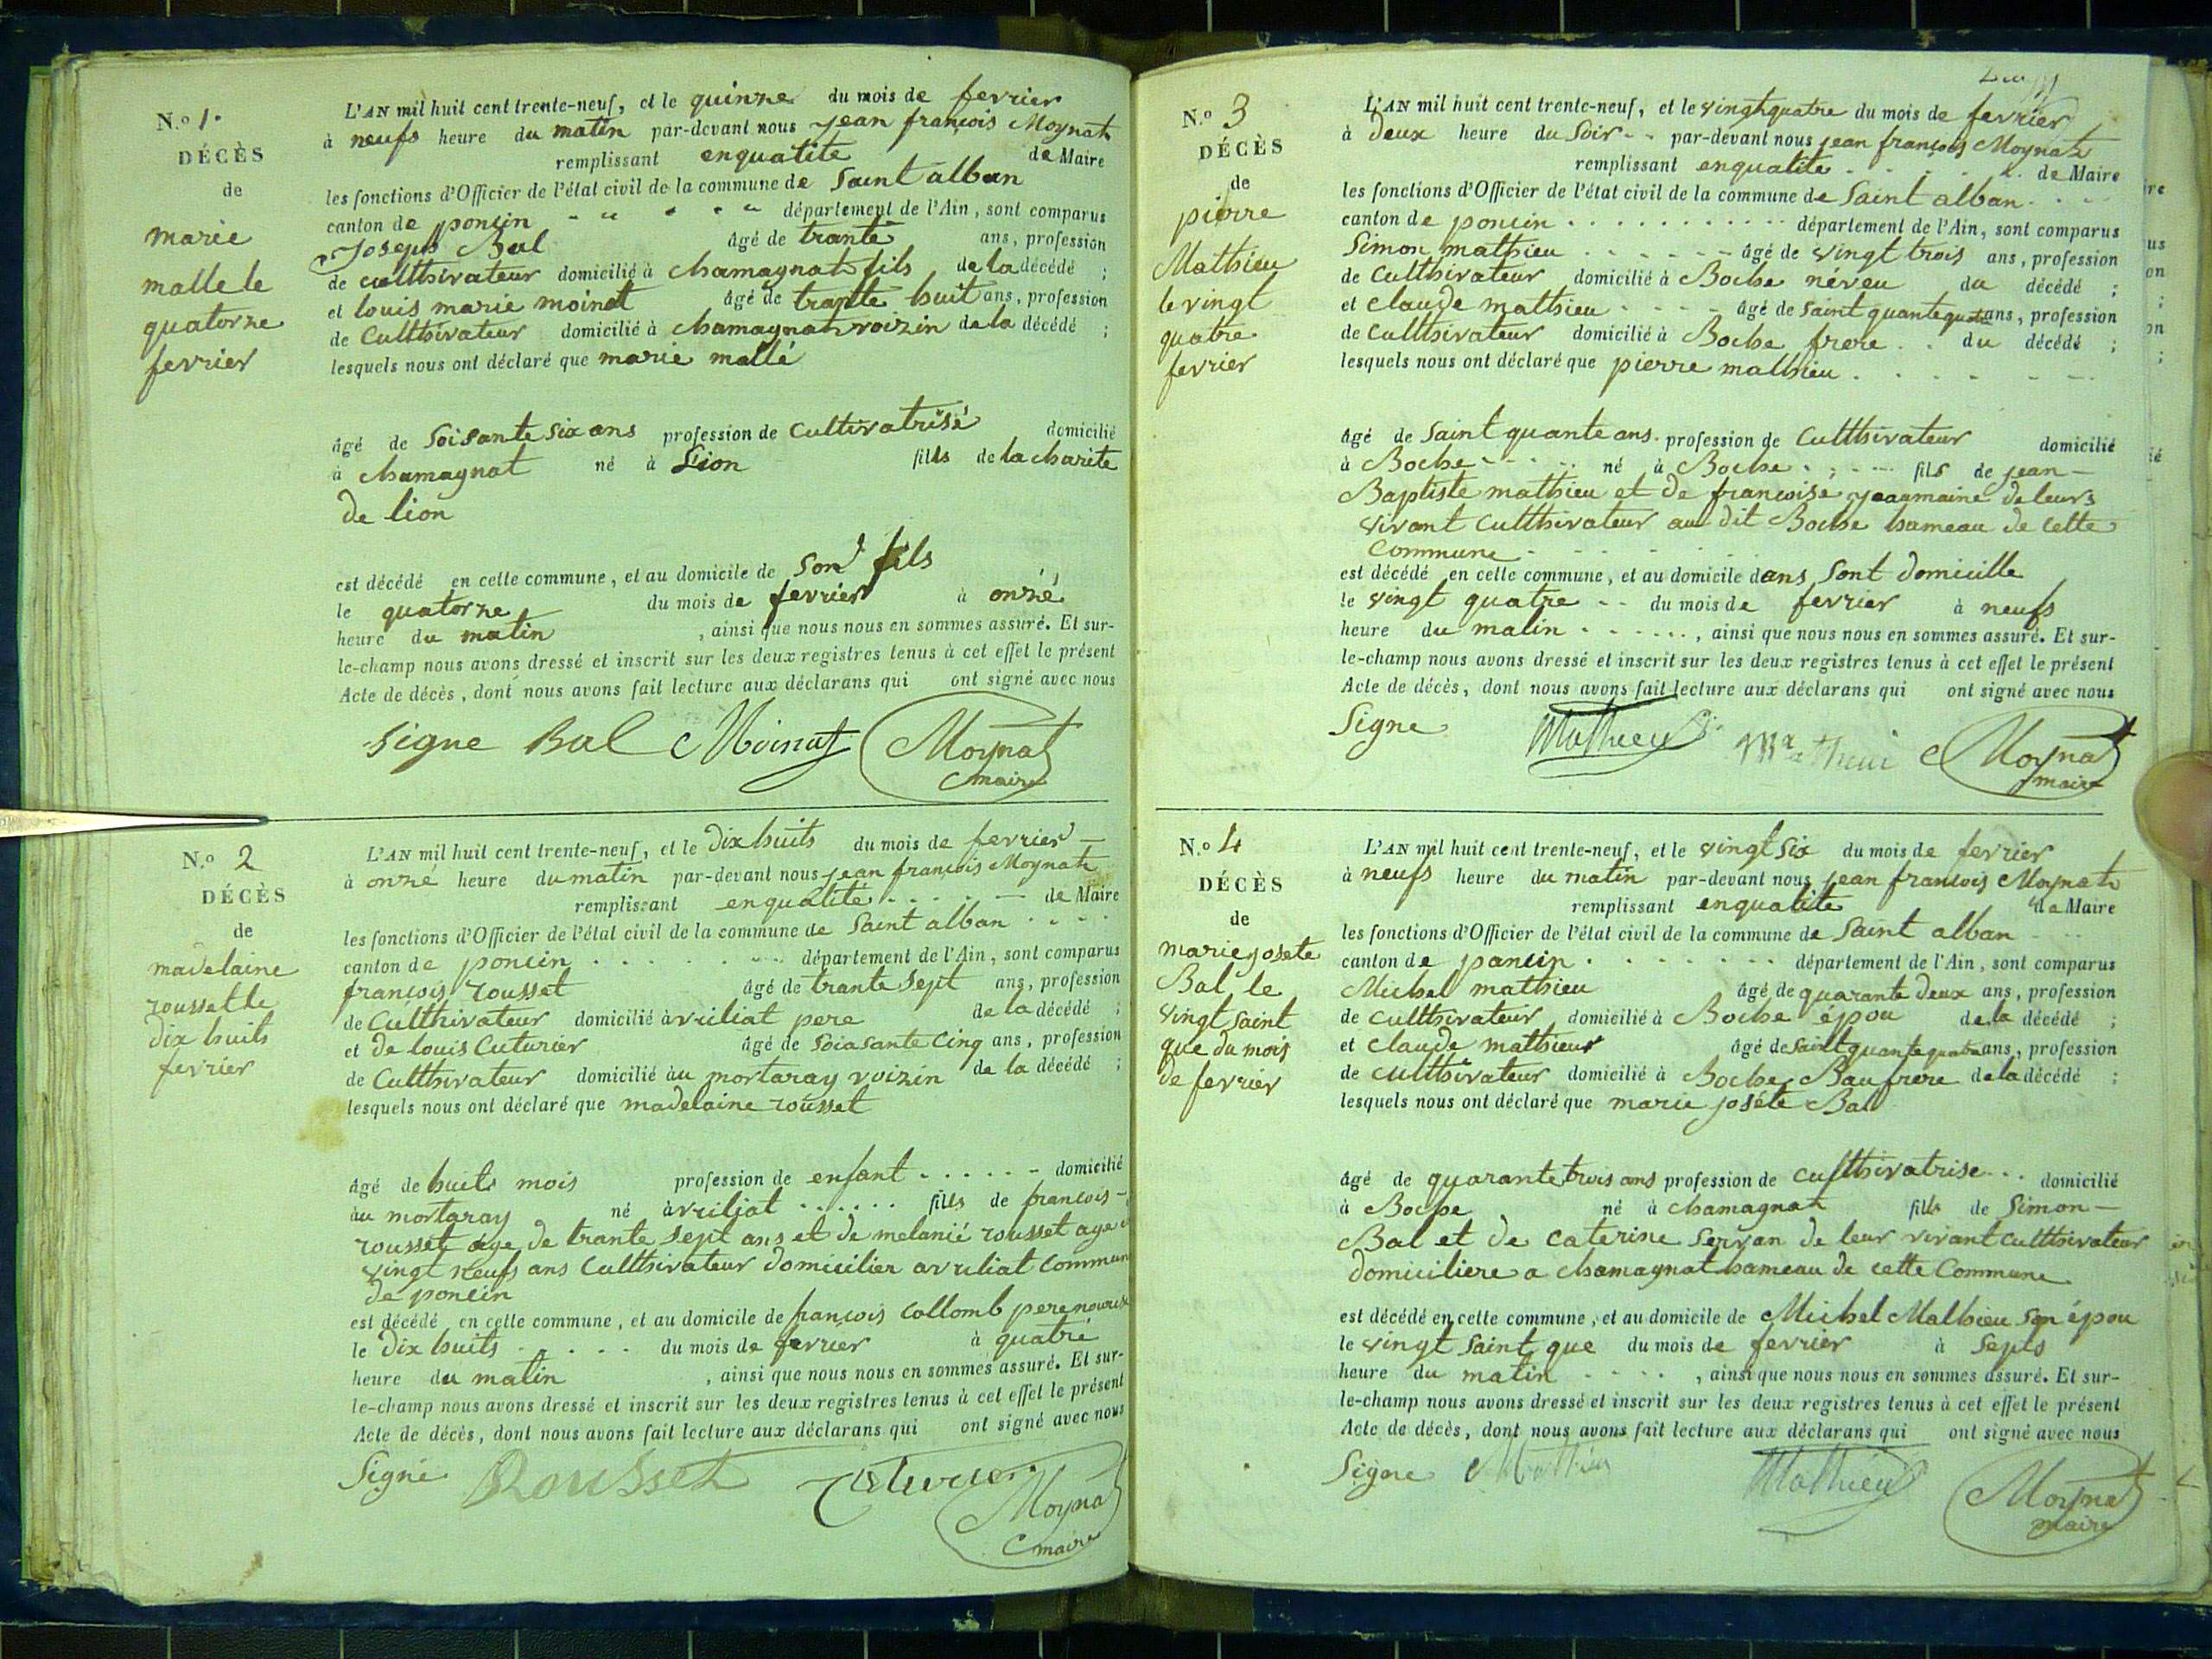 N.o 1.
DÉCÈS
de
marie
malle le
quatorze
fevrier
L'AN mil huit cent trente-neuf, et le quinze du mois de fevrier
à neufs heure du matin par-devant nous jean françois Moynat
remplissant enqualite de Maire
les fonctions d'Officier de l'état civil de la commune de Saint alban
canton de poncin département de l'Ain, sont comparus
Joseph Bal âgé de trante ans, profession
de culthivateur domicilié à chamagnat fils de la décédé ;
et louis marie moinat âgé de trante huit ans, profession
de Culthivateur domicilié à chamagnat voizin de la décédé ;
lesquels nous ont déclaré que marie mallé
âgé de Soisante six ans profession de Cultivatrisé domicilié
à chamagnat né à Lion fills de la charite
de lion
est décédé en cette commune, et au domicile de Son fils
le quatorze du mois de fevrier à onzé
heure du matin , ainsi que nous nous en sommes assuré. Et sur-
le-champ nous avons dressé et inscrit sur les deux registres tenus à cet effet le présent
Acte de décès, dont nous avons fait lecture aux déclarans qui ont signé avec nous
Signe Bal Moinat Moynat
maire
N.o 2
DÉCÈS
de
madelaine
rousset le
dix huits
fevrier
L'AN mil huit cent trente-neuf, et le dix huits du mois de fevrier
à onzé heure du matin par-devant nous jean françois Moynat
remplissant enqualité de Maire
les fonctions d'Officier de l'état civil de la commune de Saint alban
canton de poncin département de l'Ain, sont comparus
françois rousset âgé de trante sept ans, profession
de Culthivateur domicilié à vriliat pere de la décédé ;
et de louis Cuturier âgé de Soiasante Cinq ans, profession
de Culthivateur domicilié àu mortaray voizin de la décédé ;
lesquels nous ont déclaré que madelaine rousset
âgé de huits mois profession de enfant domicilié
àu mortaray né à vriliat fills de francois
rousset age de trante sept ans et de melanié rousset age
vingt neufs ans Culthivateur domicilier a vriliat commun
de poncin
est décédé en cette commune, et au domicile de françois Collomb pere nourise
le dix huits du mois de fevrier à quatré
heure du matin , ainsi que nous nous en sommes assuré. Et sur-
le-champ nous avons dressé et inscrit sur les deux registres tenus à cet effet le présent
Acte de décès, dont nous avons fait lecture aux déclarans qui ont signé avec nous
Signé Rousset Cuturier
Moynat
maire
N.o 3
DÉCÈS
de
pierre
Mathieu
le vingt
quatre
fevrier
L'AN mil huit cent trente-neuf, et le vinght quatre du mois de fevrier
à deux heure du Soir par-devant nous jean françois Moynat
remplissant enqualite de Maire
les fonctions d'Officier de l'état civil de la commune de Saint alban
canton de poncin département de l'Ain, sont comparus
Simon mathieu âgé de vingt trois ans, profession
de Culthivateur domicilié à Boche néveu du décédé ;
et Claude mathieu âgé de Saint quante quatre ans, profession
de culthivateur domicilié à Boche frere du décédé ;
lesquels nous ont déclaré que pierre mathieu
âgé de Saint quante ans profession de Culthivateur domicilié
à Boche né à Boche fils de jean
Baptiste mathieu et de francoise jeanmaine de leurs
vivant culthivateur au dit Boche hameau de cette
Commune
est décédé en cette commune, et au domicile dans Sont domicille
le vingt quatre du mois de fevrier à neufs
heure du matin , ainsi que nous nous en sommes assuré. Et sur-
le-champ nous avons dressé et inscrit sur les deux registres tenus à cet effet le présent
Acte de décès, dont nous avons fait lecture aux déclarans qui ont signé avec nous
Signe Mathieu Mathieu Moynat
maire
N.o 4
DÉCÈS
de
marie joséte
Bal le
vingt saint
que du mois
de fevrier
L'AN mil huit cent trente-neuf, et le vingt Six du mois de fevrier
à neufs heure du matin par-devant nous jean francois Moynat
remplissant enqualite de Maire
les fonctions d'Officier de l'état civil de la commune de Saint alban
canton de pancin département de l'Ain, sont comparus
Michel mathieu âgé de quarante deux ans, profession
de culthivateur domicilié à Boche épou de la décédé ;
et Claude mathieur âgé de saint quante quatre ans, profession
de culthivateur domicilié à Boche Baufrere de la décédé ;
lesquels nous ont déclaré que marie joséte Bal
âgé de quarante trois ans profession de culthivatrise domicilié
à Boche né à chamagnat fills de Simon
Bal et de caterine Servan de leur vivant culthivateur
domiciliere a chamagnat hameau de cette Commune
est décédé en cette commune, et au domicile de Michel Mathieu son épou
le vingt saint que du mois de fevrier à Septs
heure du matin , ainsi que nous nous en sommes assuré. Et sur-
le-champ nous avons dressé et inscrit sur les deux registres tenus à cet effet le présent
Acte de décès, dont nous avons fait lecture aux déclarans qui ont signé avec nous
Signe Mathieu Mathieu Moynat
maire